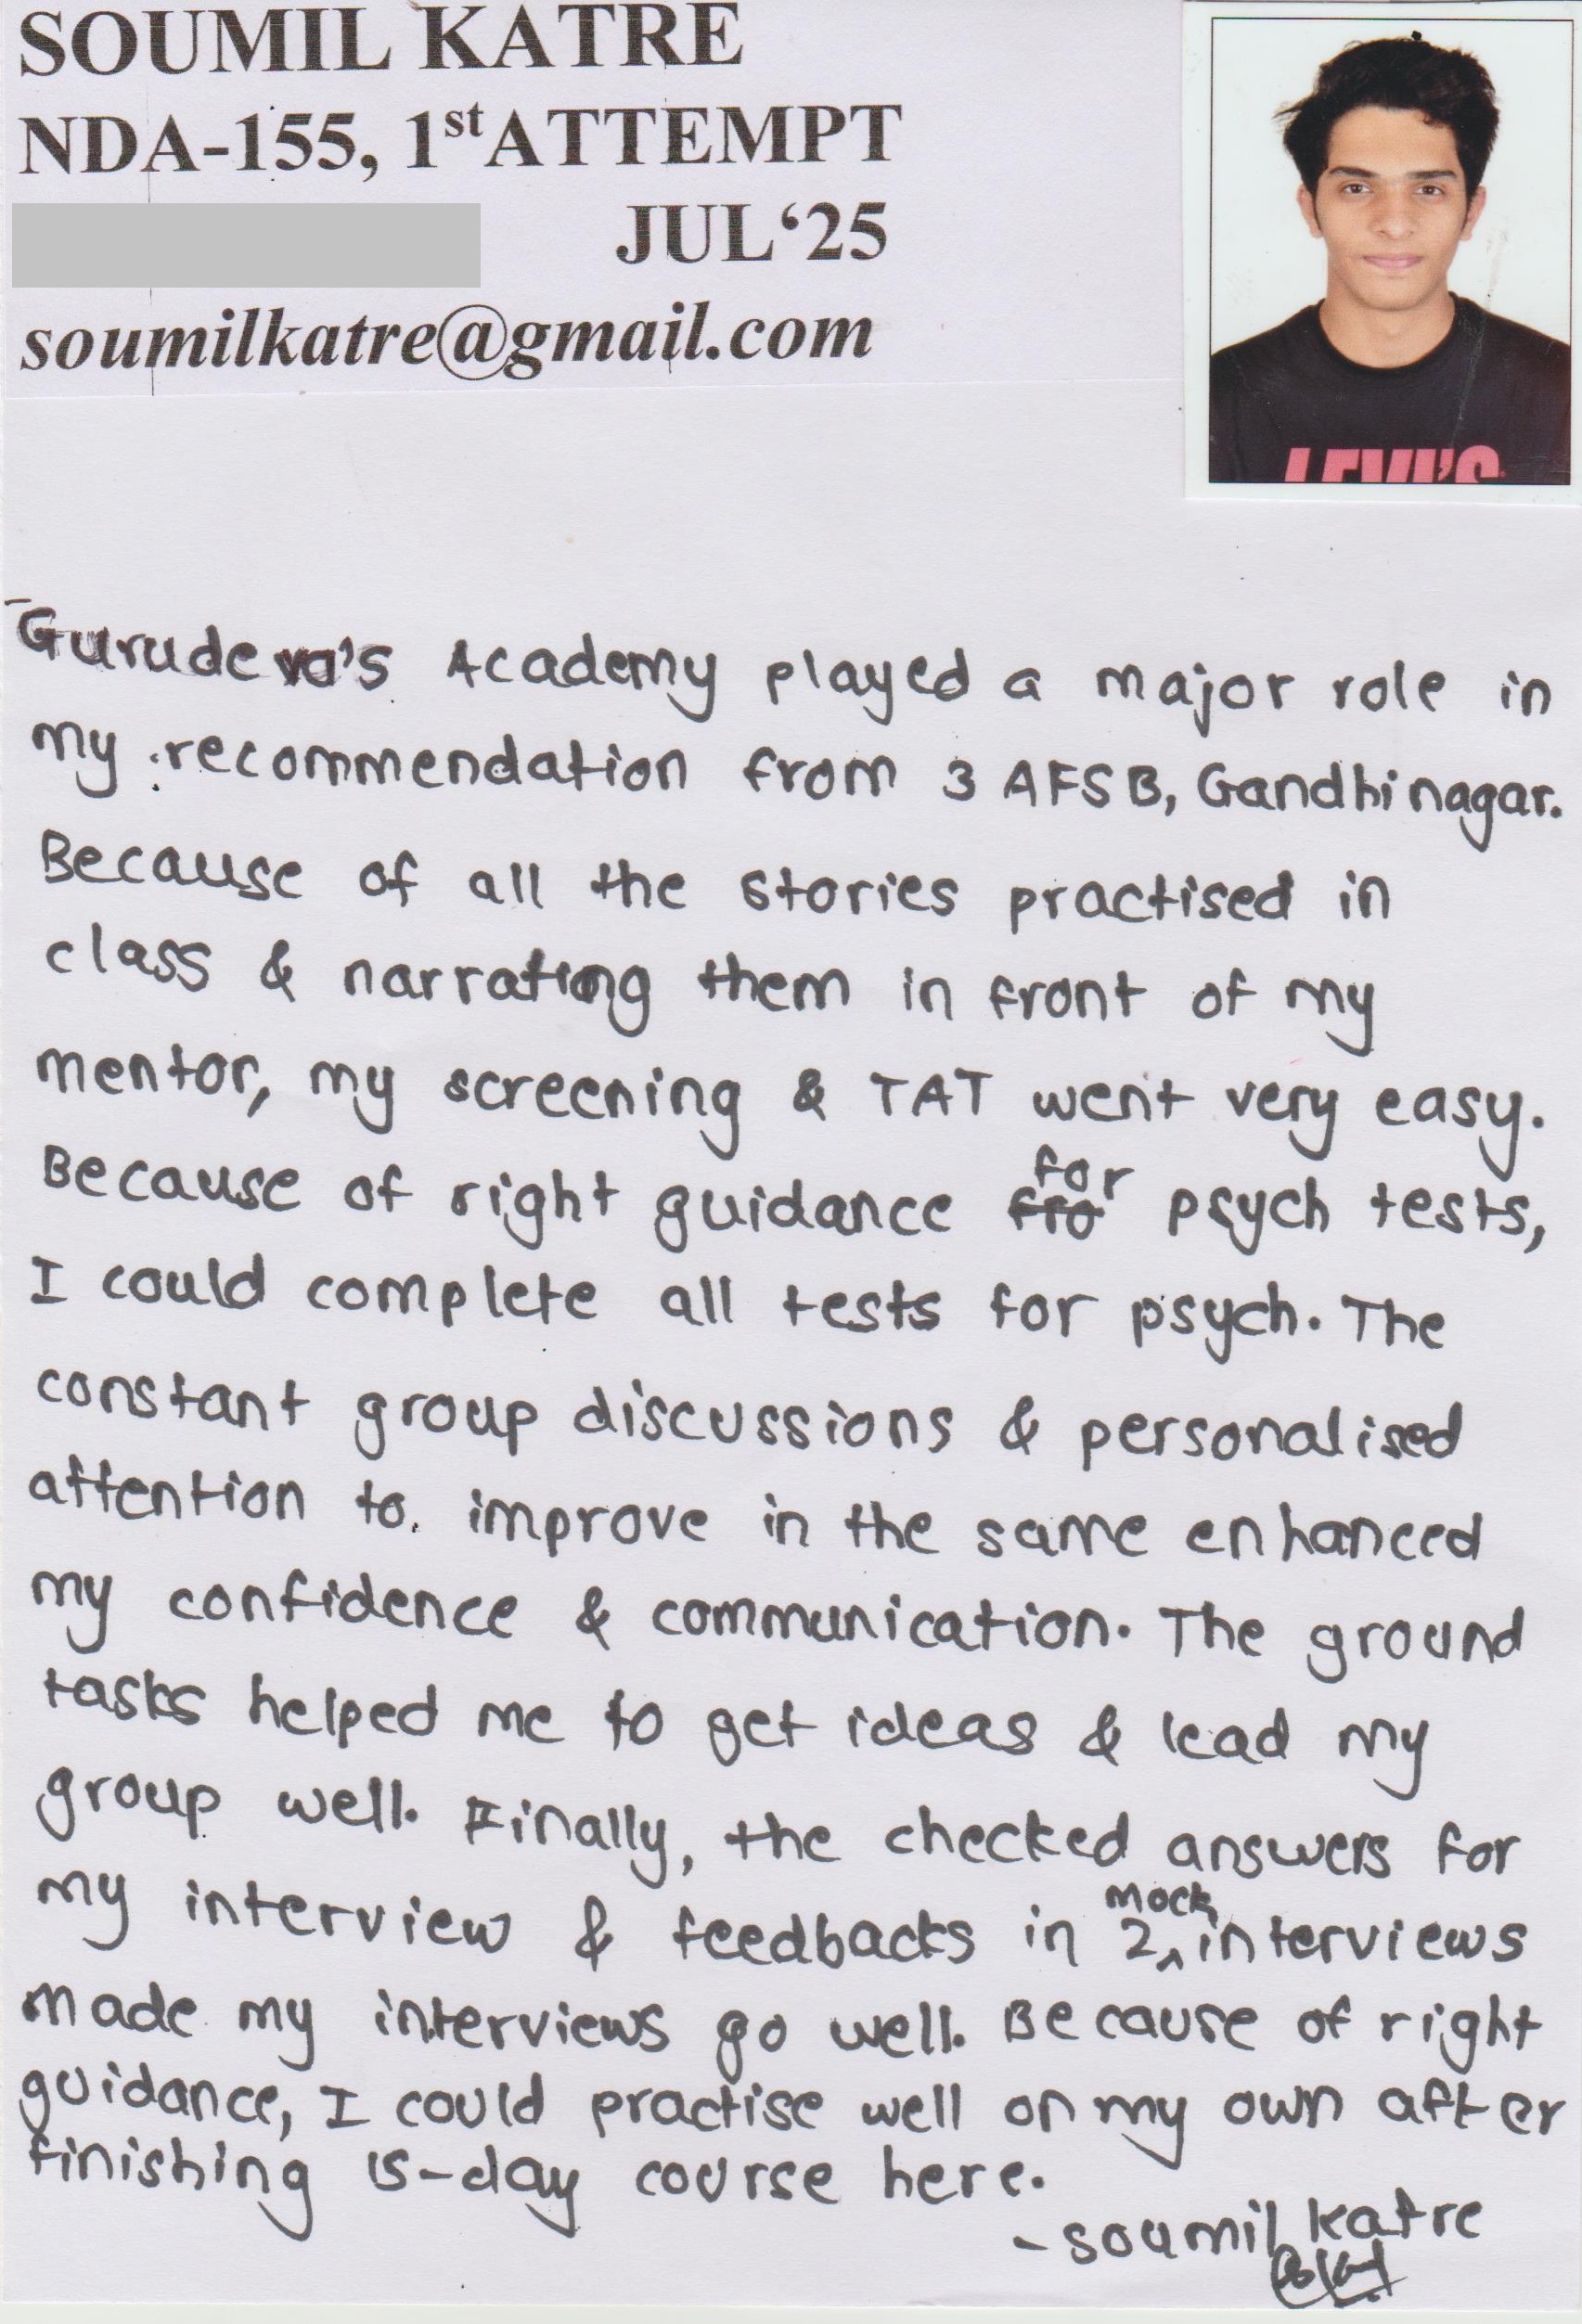 SOUMIL KATRE
NDA-155, 1st ATTEMPT
JUL‘25
soumilkatre@gmail.com
LEVI'S
Gurudeva's Academy played a major role in
my recommendation from 3 AFSB, Gandhinagar.
Because of all the stories practised in
class & narrating them in front of my
mentor, my screening & TAT went very easy.
Because of right guidance for psych tests,
I could complete all tests for psych. The
constant group discussions & personalised
attention to improve in the same enhanced
my confidence & communication. The ground
tasks helped me to get ideas & lead my
group well. Finally, the checked answers for
my interview & feedbacks in 2 mock interviews
made my interviews go well. Because of right
guidance, I could practise well on my own after
finishing 15-day course here.
- Soumil Katre